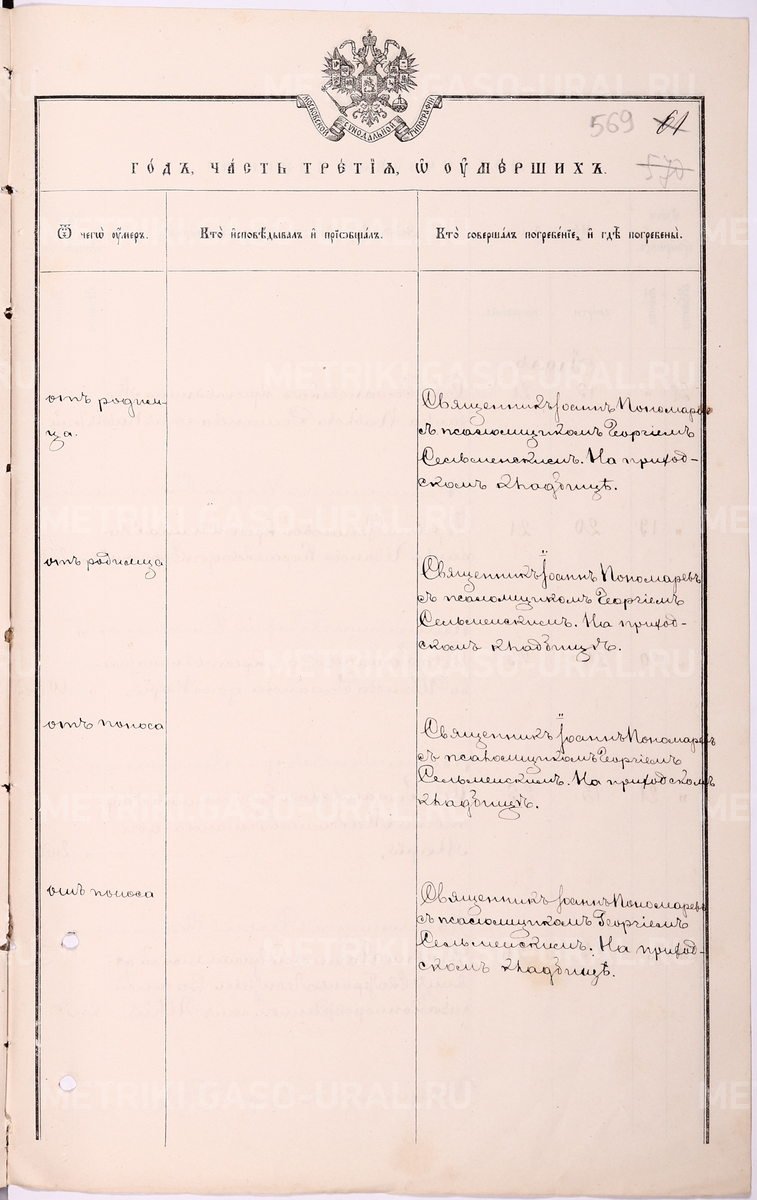 МОСКОВСКОЙ СѴНОДАЛЬНОЙ ТИПОГРАФІИ
569 61
570
ГО́ДЪ, ЧА́СТЬ ТРЕ́ТІѦ, Ѡ҆ ОУ҆МЕ́РШИХЪ.
Ѿ чегѡ̀ оу҆́меръ.
Кто̀ и҆сповѣ́дывалъ и҆ прїѡбща́лъ.
Кто̀ соверша́лъ погребе́нїе, и҆ гдѣ̀ погребены̀.
отъ родим-
ца.
Священникъ Іоаннъ Пономаревъ
съ псаломщикомъ Георгіемъ
Сельменскимъ. На приход-
скомъ кладбищѣ.
отъ родимца
Священникъ Іоаннъ Пономаревъ
съ псаломщикомъ Георгіемъ
Сельменскимъ. На приход-
скомъ кладбищѣ.
отъ поноса
Священникъ Іоаннъ Пономаревъ
съ псаломщикомъ Георгіемъ
Сельменскимъ. На приходскомъ
кладбищѣ.
отъ поноса
Священникъ Іоаннъ Пономаревъ
съ псаломщикомъ Георгіемъ
Сельменскимъ. На приход-
скомъ кладбищѣ.
METRIKI.GASO-URAL.RU